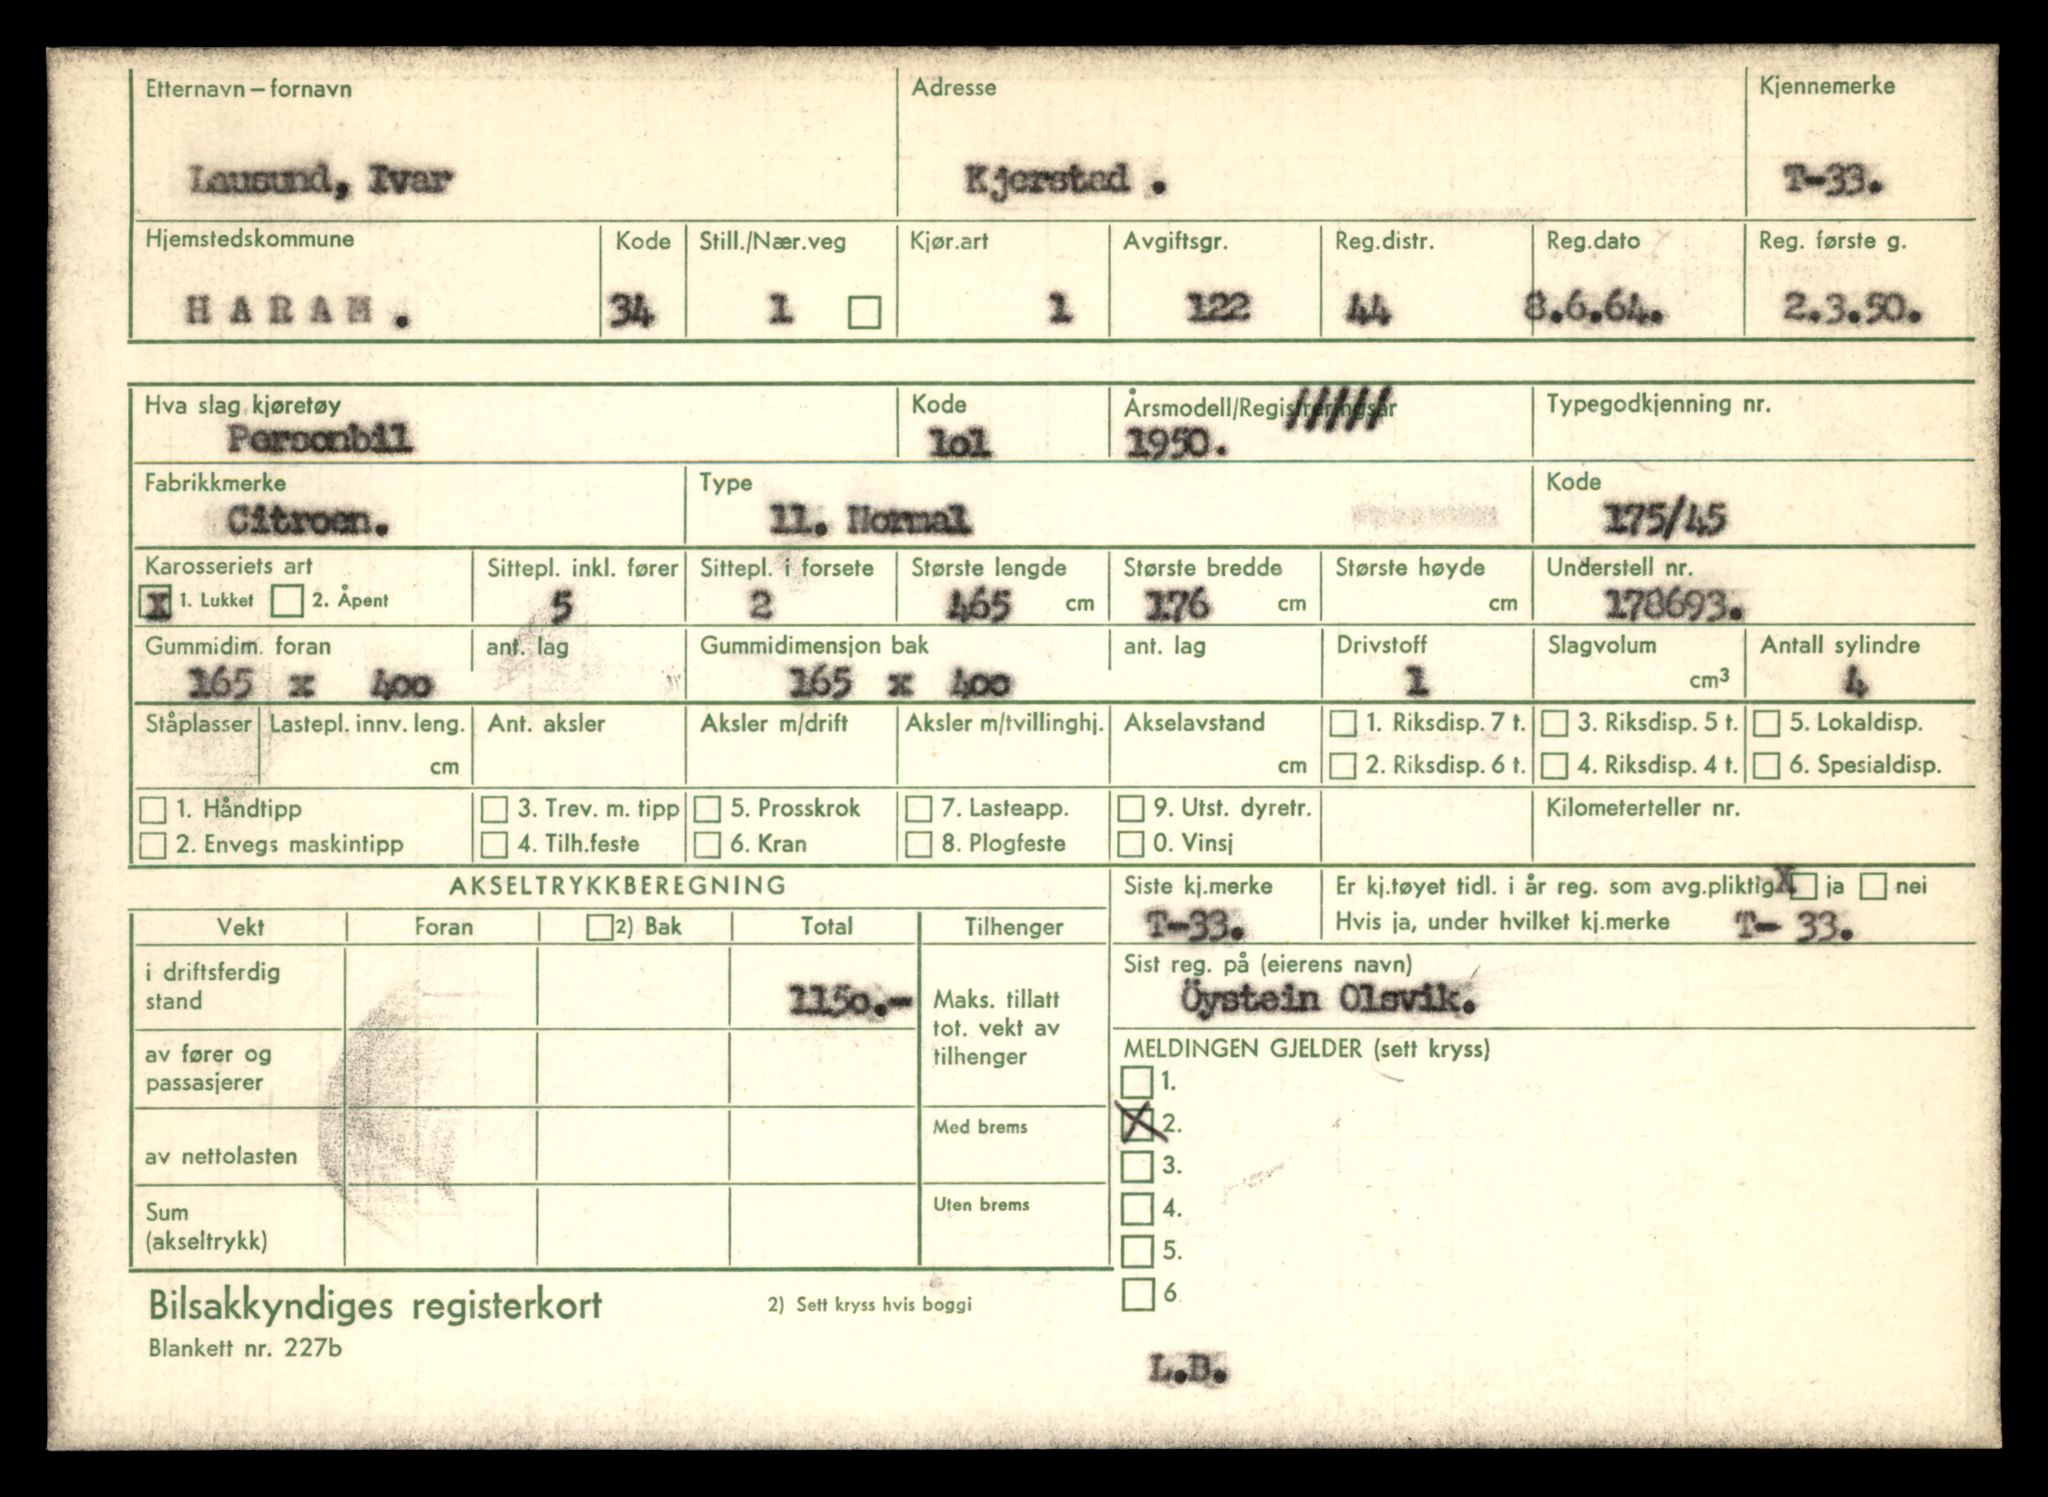 Etternavn – fornavn Adresse Kjennemerke
Lausund, Ivar Kjerstad . T-33.
Hjemstedskommune Kode Still./Nær.veg Kjør.art Avgiftsgr. Reg.distr. Reg.dato Reg. første g.
HARAM. 34 1 1 122 44 8.6.64. 2.3.50.
Hva slag kjøretøy Kode Årsmodell/Registreringsår Typegodkjenning nr.
Personbil 1o1 1950. /////
Fabrikkmerke Type Kode
Citroen. 11. Normal 175/45
Karosseriets art Sittepl. inkl. fører Sittepl. i forsete Største lengde Største bredde Største høyde Understell nr.
X 1. Lukket 2. Åpent 5 2 465 cm 176 cm cm 178693.
Gummidim. foran ant. lag Gummidimensjon bak ant. lag Drivstoff Slagvolum Antall sylindre
165 x 4oo 165 x 4oo 1 cm³ 4
Ståplasser Lastepl. innv. leng. Ant. aksler Aksler m/drift Aksler m/tvillinghj. Akselavstand 1. Riksdisp. 7 t. 3. Riksdisp. 5 t. 5. Lokaldisp.
cm cm 2. Riksdisp. 6 t. 4. Riksdisp. 4 t. 6. Spesialdisp.
1. Håndtipp 3. Trev. m. tipp 5. Prosskrok 7. Lasteapp. 9. Utst. dyretr. Kilometerteller nr.
2. Envegs maskintipp 4. Tilh.feste 6. Kran 8. Plogfeste 0. Vinsj
AKSELTRYKKBEREGNING Siste kj.merke Er kj.tøyet tidl. i år reg. som avg.pliktig X ja nei
Vekt Foran 2) Bak Total Tilhenger T-33. Hvis ja, under hvilket kj.merke T- 33.
i driftsferdig stand 115o.- Maks. tillatt tot. vekt av tilhenger
Sist reg. på (eierens navn)
Öystein Olsvik.
av fører og passasjerer
MELDINGEN GJELDER (sett kryss)
1.
X 2.
av nettolasten Med brems
3.
4.
Sum (akseltrykk) Uten brems
5.
6
Bilsakkyndiges registerkort 2) Sett kryss hvis boggi
Blankett nr. 227b
L.B.